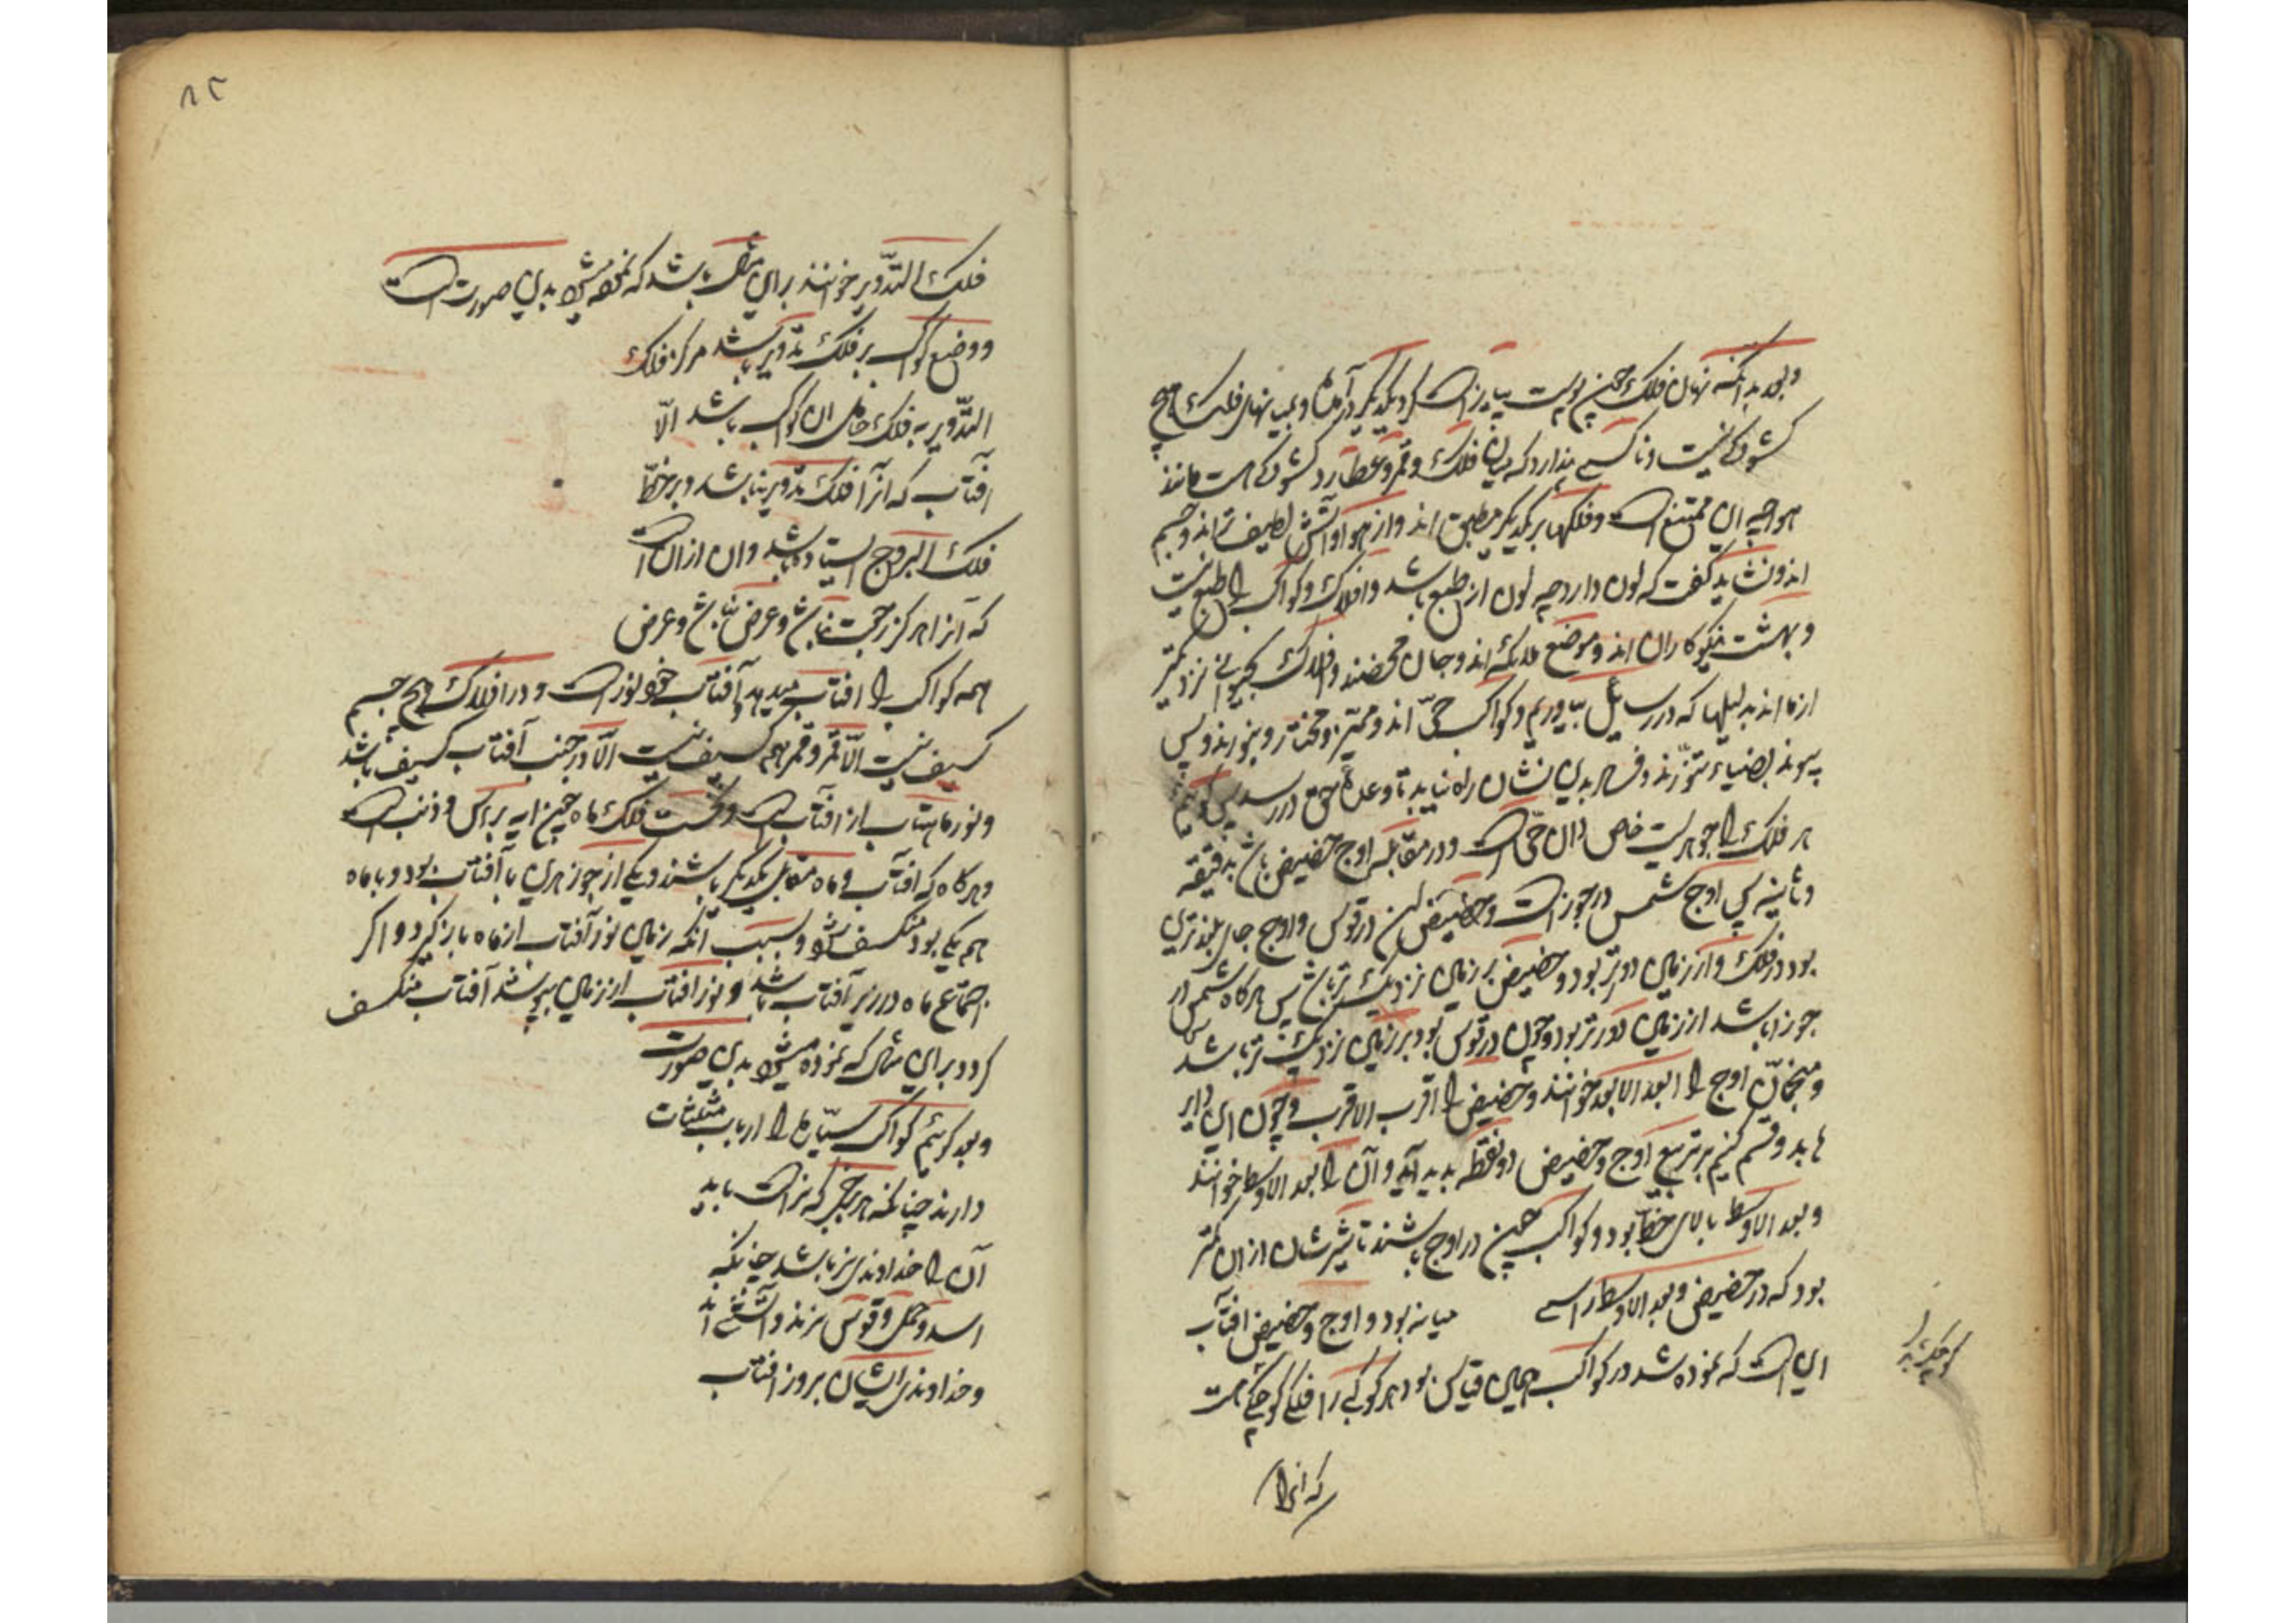 و بعد بدانکه نهاد فلک چون پوست پیاز است گرد یکدیگر در آمده و میان فلک هیچ
کشودگی نیست و تا کسی نپندارد که میان فلک و قمر و عطارد کشودگی هست مانند
هوا چه این ممتنع است و فلکها بر یکدیگر مطبق اند و از هوا و آتش لطیف تراند و جسم
اند و نشاید گفت که لون دارد چه لون از طبع باشد و افلاک و کواکب را طبع نیست
و بهشت نیکوکاران اند و موضع ملائکه اند و جان محضند و افلاک بحیوانی نزدیکتر
از ما اند بدلیلها که در رسائل بیاوریم و کواکب حیّ اند و ممیّز و مختار و
هر فلک را جوهریست خاص و آن حیّ است و در مقابله اوج حضیض باشد بدقیقه
و ثانیه پس اوج شمس در جوزاست و حضیض در قوس و اوج جای بلندترین
بود در فلک و از زمین دورتر بود و حضیض بر زمین نزدیک تر باشد پس هرگاه شمس در
جوزا باشد از زمین دورتر بود و چون در قوس بود بر زمین نزدیک تر باشد
و منجمان اوج را ابعد الابعد خوانند و حضیض را اقرب الاقرب و چون این دایره
را بدو قسم کنیم بر تربیع اوج و حضیض دو نقطه پدید آید و آن را بعد الاوسط خوانند
و بعد الاوسط بالای خط بود و کواکب چون در اوج باشند تاثیرشان از آن کمتر
بود که در حضیض و بعد الاوسط راستی میانه بود و اوج و حضیض افتاب
این است که نموده شد در کواکب همین قیاس بود هر کوکبی را فلکی کوچک هست
که انرا
۸۲
فلک التدویر خوانند براین شکل باشد که نموده میشود بدین صورت است
و وضع کوکب بر فلک تدویر باشد مرکز فلک
التدویر به فلک حامل ان کواکب باشد الّا
افتاب که انرا فلک تدویر نباشد و بر خط
فلک البروج ایستاده باشد وان ازان است
که آنرا هرگز رجعت نباشد و عرض نباشد و عرض
همه کواکب را افتاب میدهد و آفتاب خود نور است و در افلاک هیچ جسم
کسیف نیست الّا قمر و قمر هم کسیف نیست الّا در جنب آفتاب کسیف باشد
و نور ماهتاب از افتاب است و نخست فلک ماه جوزهر براس و ذنب است
و هرگاه که افتاب و ماه مقابل یکدیگر باشند و یکی از جوزهرین با آفتاب بود و با ماه
هم یکی بود منکسف شود و سبب انکه زمین نور آفتاب از ماه باز گیرد و اگر
اجتماع ماه در زیر آفتاب باشد و نور افتاب از زمین بپوشد آفتاب منکسف
گردد براین مثال که نموده میشود بدین صورت
و بعد گوئیم کواکب سیّاره را ارباب مثلثات
دارند چنانکه هر برجی که نر است باید
آن را خداوندی نر باشد چنانکه
اسد و حمل و قوس نرند و آتشی اند
و خداوندی ایشان بروز افتاب